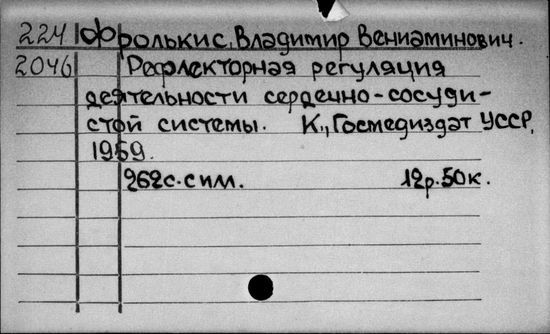 224 Фролькис, Владимир Вениаминович.
2046 Рефлекторная регуляция
деятельности сердечно-сосуди-
стой системы. К., Госмедиздат УССР,
1959.
262с. с илл. 12р. 50к.